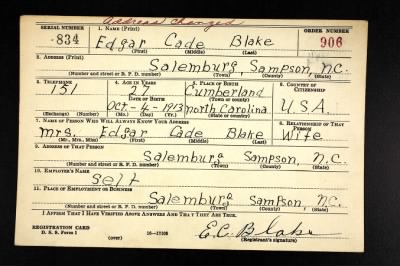 Address Changed
SERIAL NUMBER 1. NAME (Print) ORDER NUMBER
834 Edgar Cade Blake 906
(First) (Middle) (Last)
2. ADDRESS (Print)
Salemburg, Sampson, N.C.
(Number and street or R. F. D. number) (Town) (County) (State)
3. TELEPHONE 4. AGE IN YEARS 5. PLACE OF BIRTH 6. COUNTRY OF CITIZENSHIP
151 27 Cumberland
DATE OF BIRTH (Town or county)
Oct-4-1913 North Carolina U.S.A.
(Exchange) (Number) (Mo.) (Day) (Yr.) (State or country)
7. NAME OF PERSON WHO WILL ALWAYS KNOW YOUR ADDRESS 8. RELATIONSHIP OF THAT PERSON
Mrs. Edgar Cade Blake Wife
(Mr., Mrs., Miss) (First) (Middle) (Last)
9. ADDRESS OF THAT PERSON
Salemburg Sampson, N.C.
(Number and street or R. F. D. number) (Town) (County) (State)
10. EMPLOYER'S NAME
Self
11. PLACE OF EMPLOYMENT OR BUSINESS
Salemburg Sampson, N.C.
(Number and street or R. F. D. number) (Town) (County) (State)
I AFFIRM THAT I HAVE VERIFIED ABOVE ANSWERS AND THAT THEY ARE TRUE.
REGISTRATION CARD E.C. Blake
D. S. S. Form 1 16—17105 (Registrant's signature)